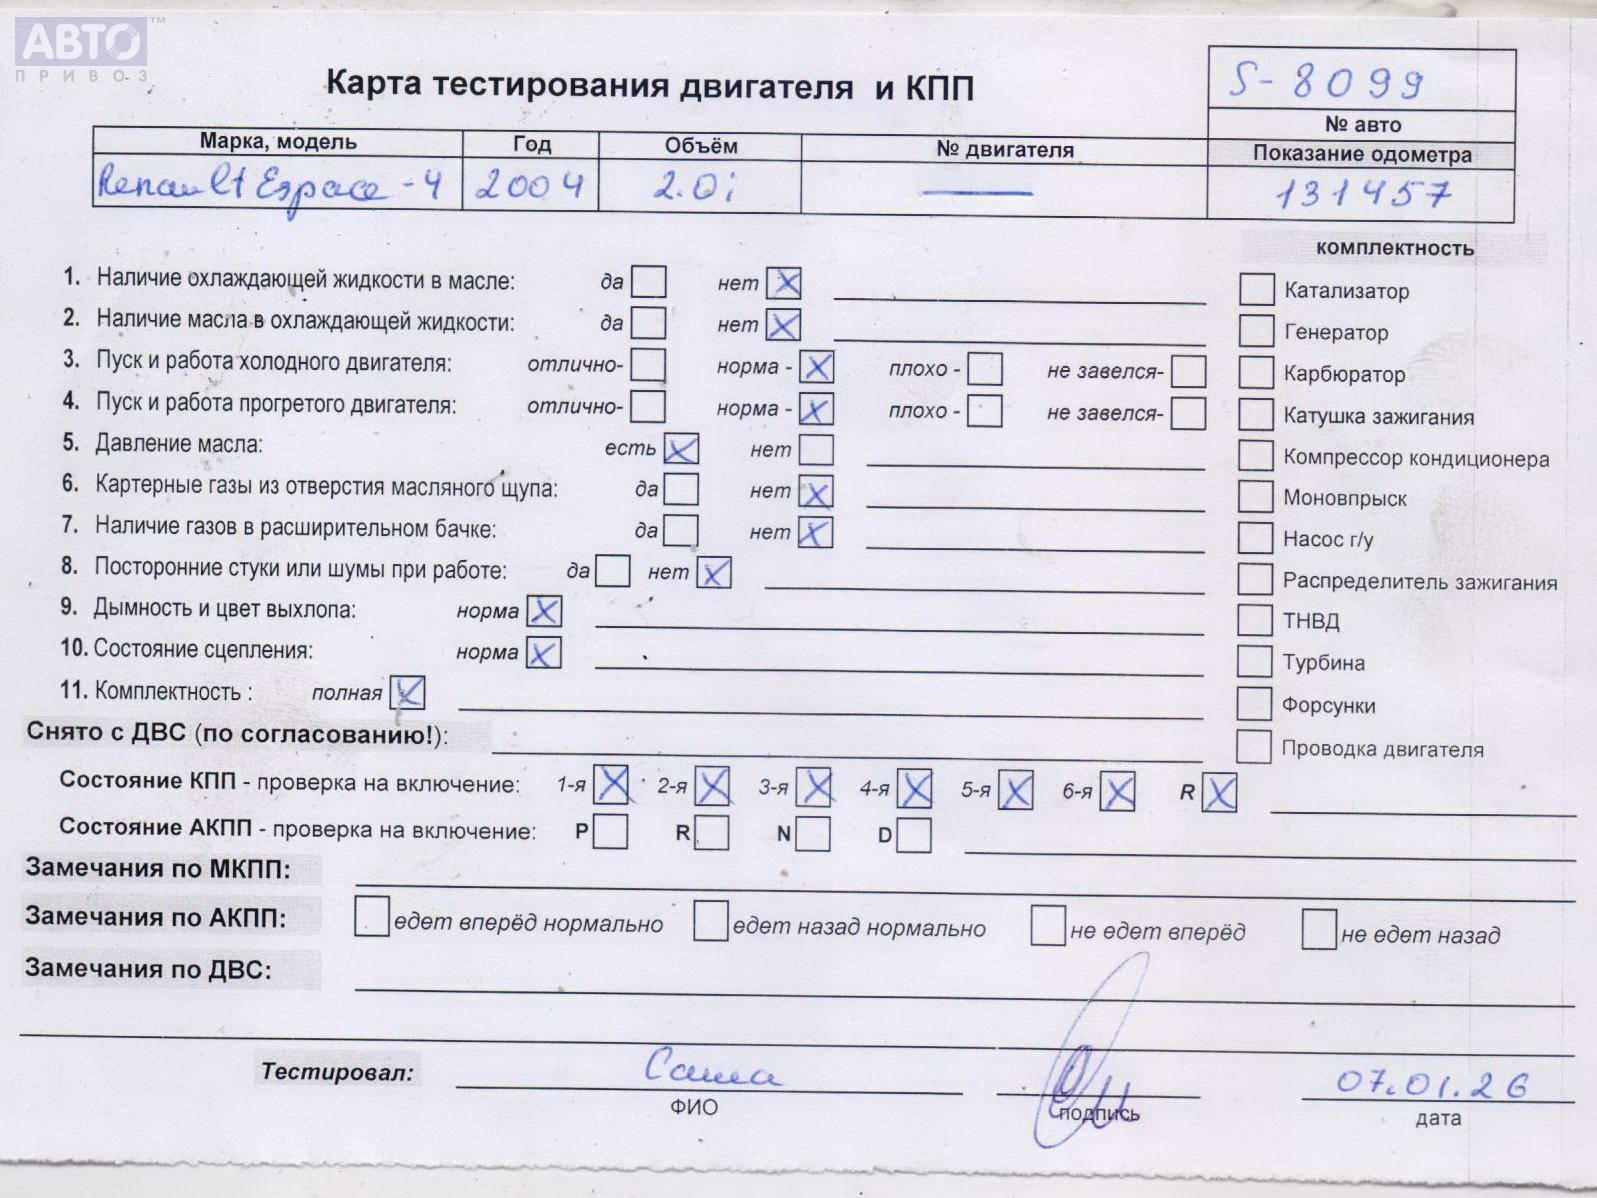 АВТО™
ПРИВОЗ
Карта тестирования двигателя и КПП
S-8099
№ авто
Марка, модель Год Объём № двигателя Показание одометра
Renault Espace-4 2004 2.0i — 131457
комплектность
1. Наличие охлаждающей жидкости в масле: да нет X
Катализатор
2. Наличие масла в охлаждающей жидкости: да нет X
Генератор
3. Пуск и работа холодного двигателя: отлично- норма - X плохо - не завелся-
Карбюратор
4. Пуск и работа прогретого двигателя: отлично- норма - X плохо - не завелся-
Катушка зажигания
5. Давление масла: есть X нет
Компрессор кондиционера
6. Картерные газы из отверстия масляного щупа: да нет X
Моновпрыск
7. Наличие газов в расширительном бачке: да нет X
Насос г/у
8. Посторонние стуки или шумы при работе: да нет X
Распределитель зажигания
9. Дымность и цвет выхлопа: норма X
ТНВД
10. Состояние сцепления: норма X
Турбина
11. Комплектность : полная X
Форсунки
Снято с ДВС (по согласованию!):
Проводка двигателя
Состояние КПП - проверка на включение: 1-я X 2-я X 3-я X 4-я X 5-я X 6-я X R X
Состояние АКПП - проверка на включение: P R N D
Замечания по МКПП:
Замечания по АКПП: едет вперёд нормально едет назад нормально не едет вперёд не едет назад
Замечания по ДВС:
Тестировал: Саша 07.01.26
ФИО подпись дата